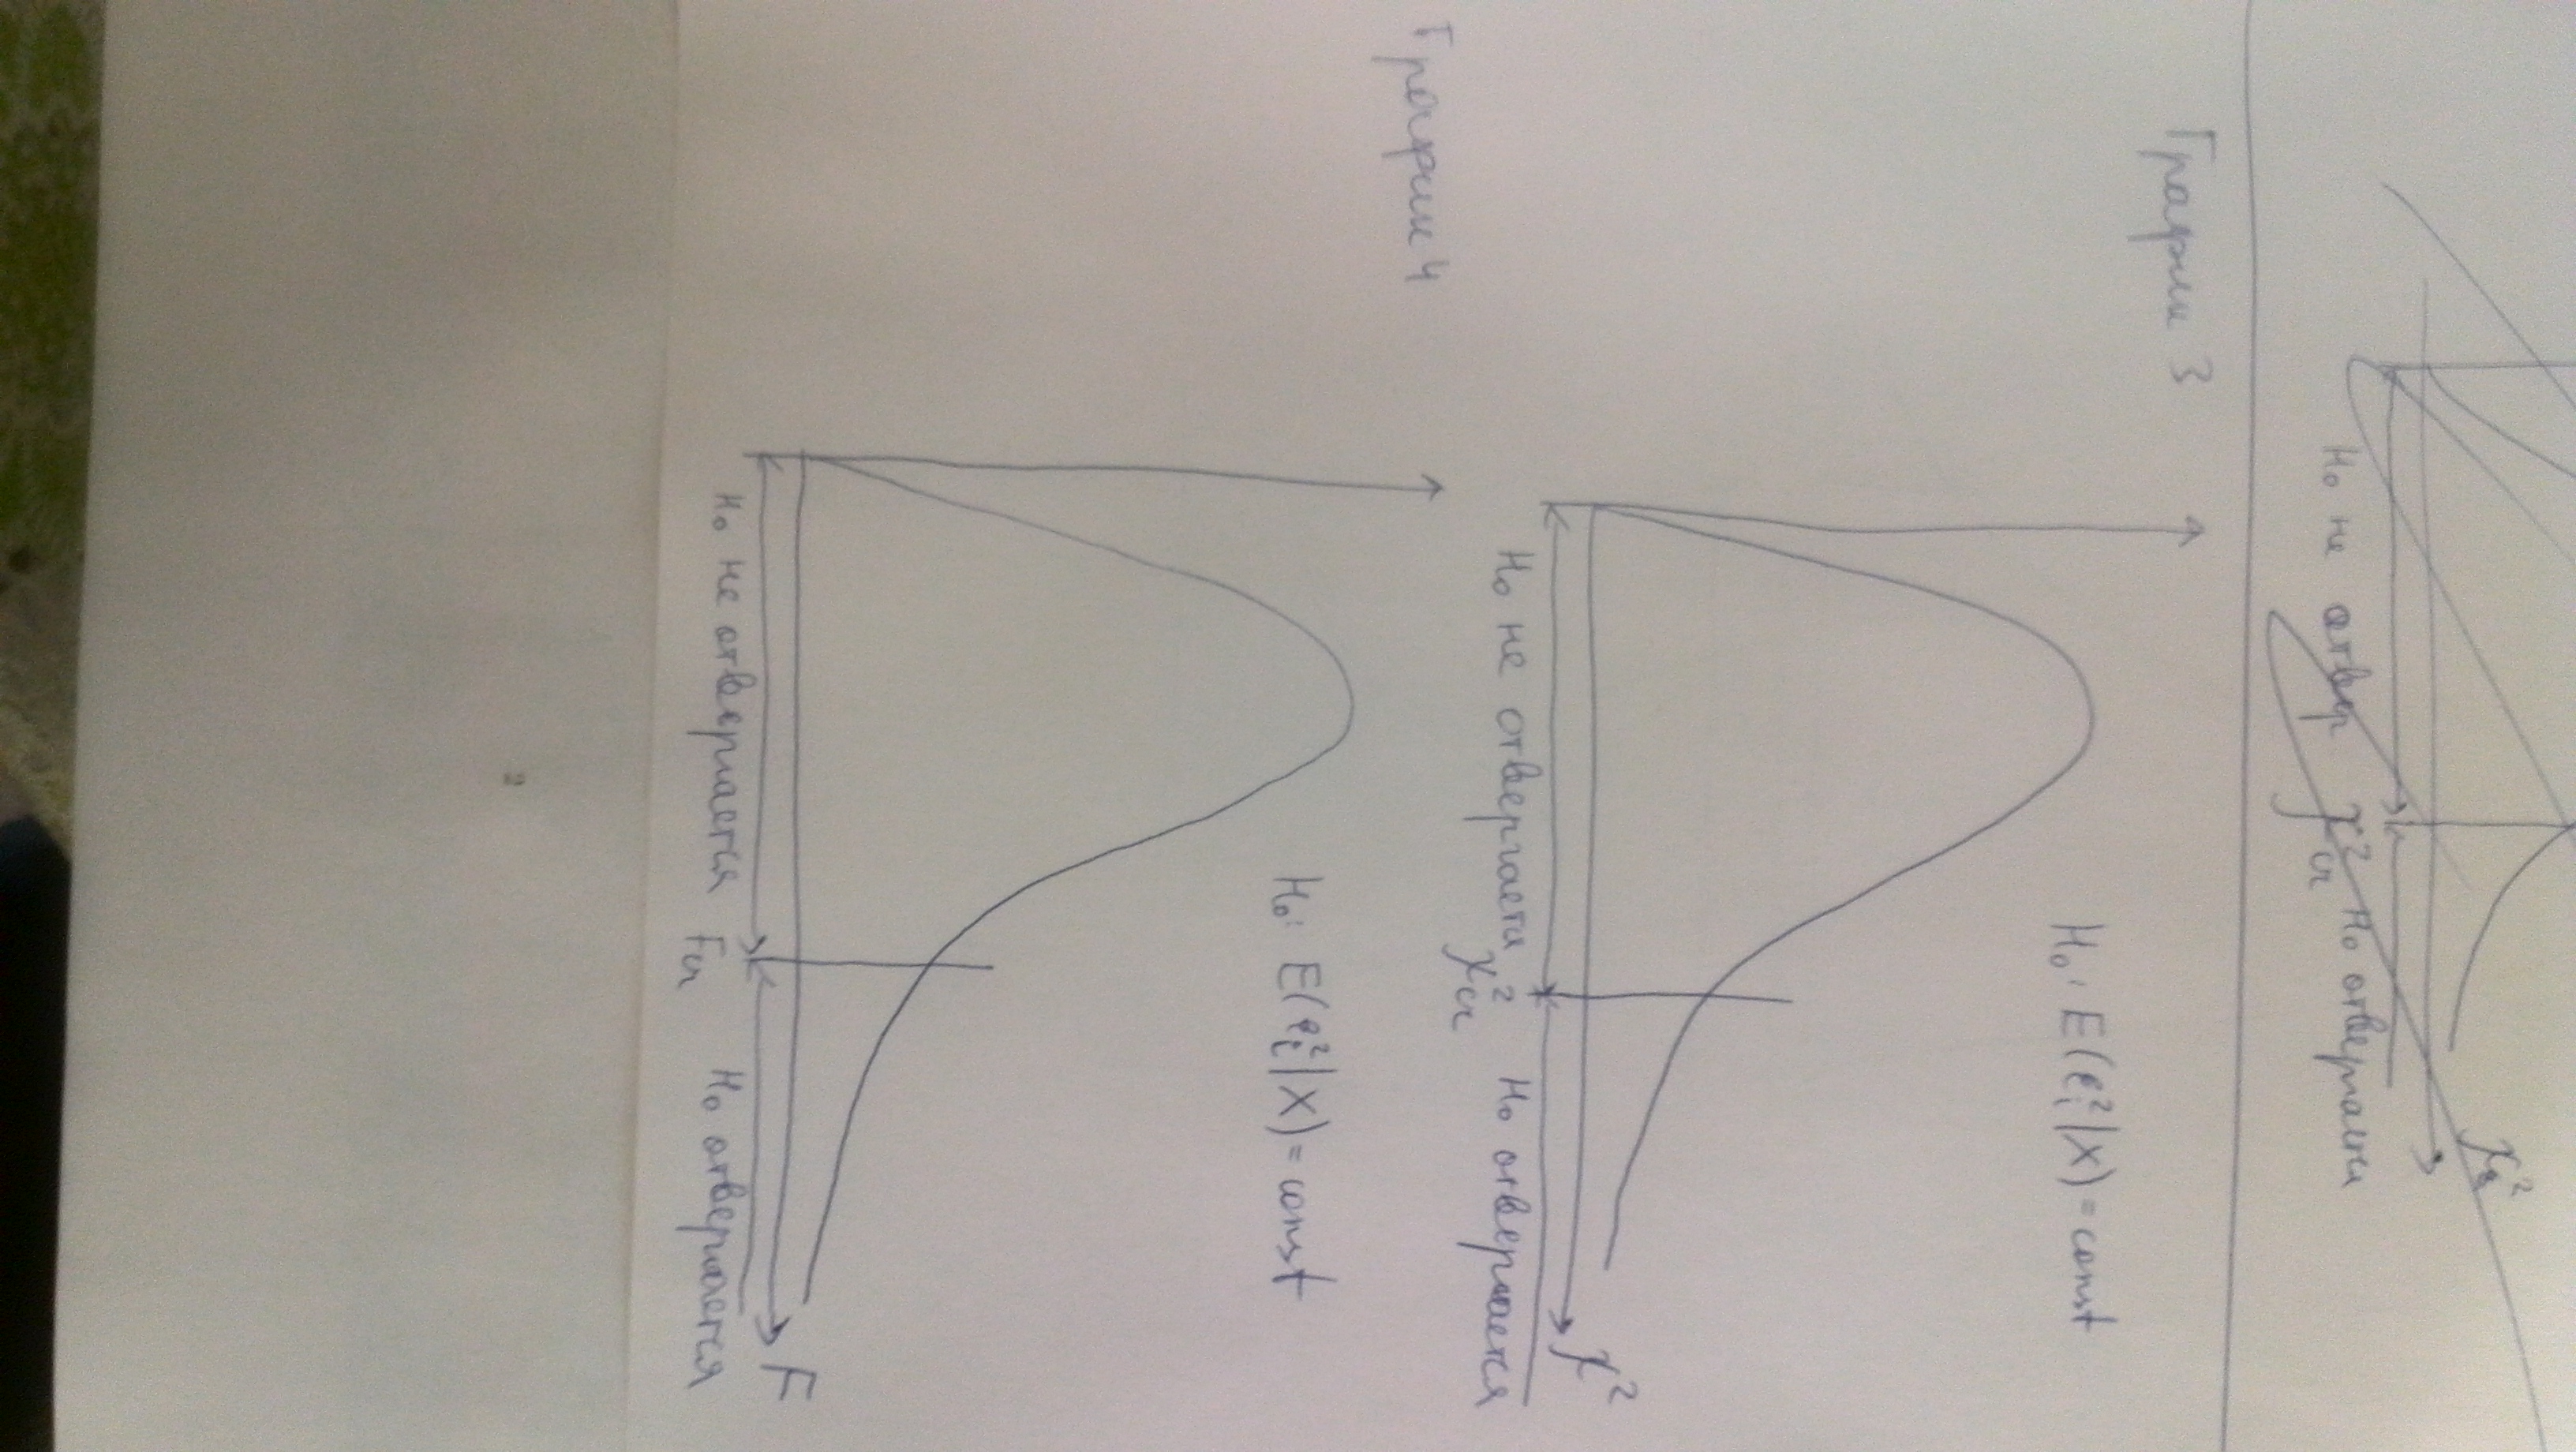 χ²
H₀ не отвер χ²cr H₀ отвергается
График 3
H₀: E(e²ᵢ|X) = const
χ²
H₀ не отвергается χ²cr H₀ отвергается
График 4
H₀: E(e²ᵢ|X) = const
F
H₀ не отвергается Fcr H₀ отвергается
2